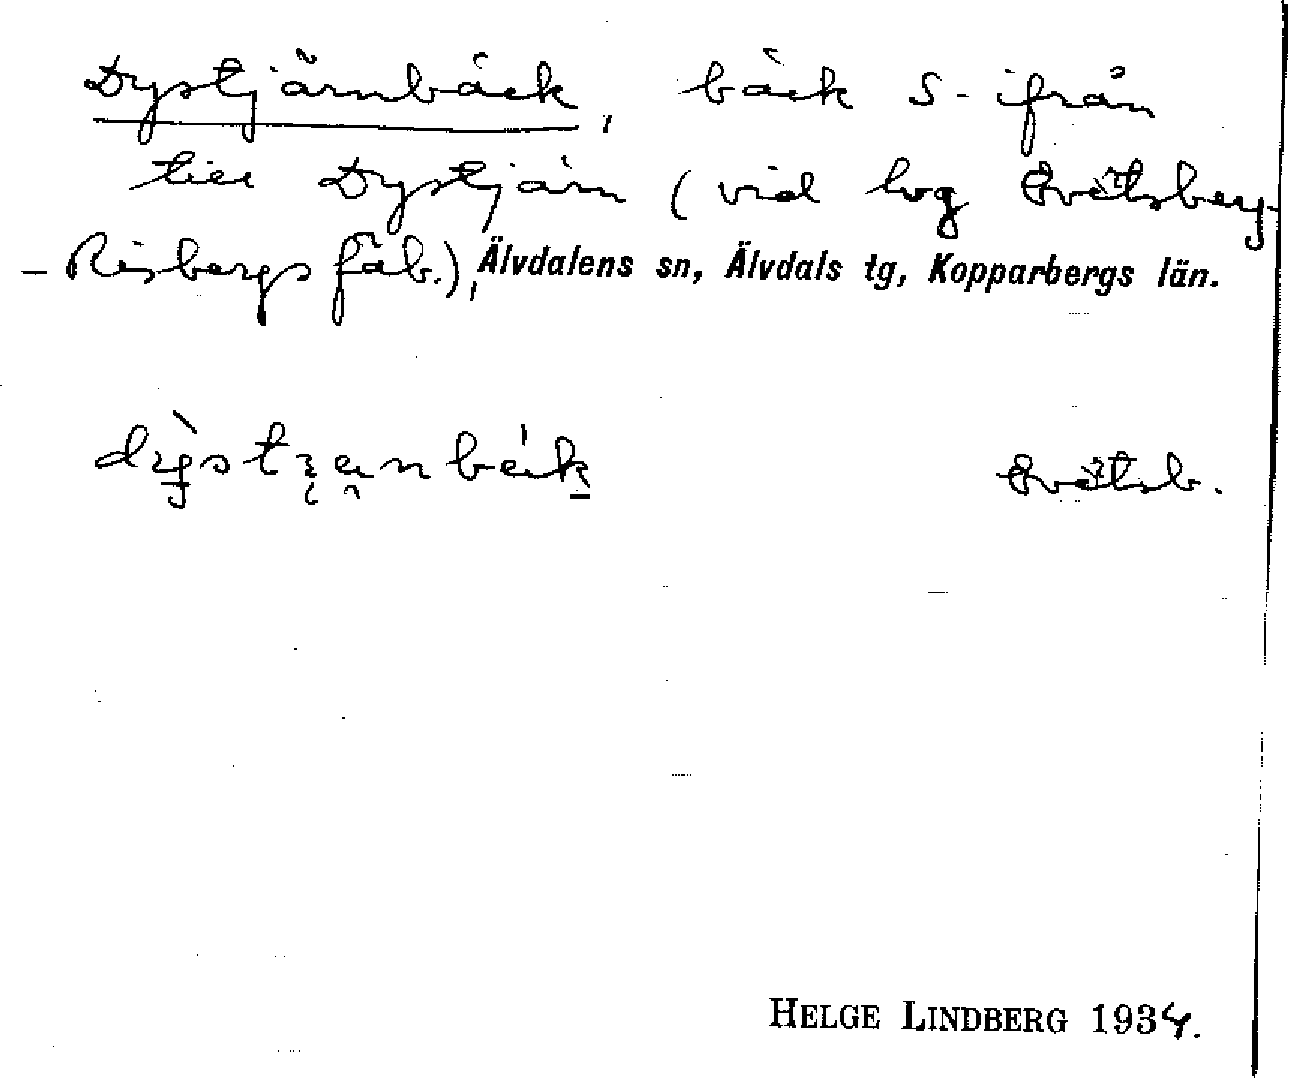 Dystjärnbäck, bäck S-ifrån
till Dystjärn (vid lvg Evätsberg-
-Risbergs fäb.), Älvdalens sn, Älvdals tg, Kopparbergs län.
Evätsb.
HELGE LINDBERG 1934.